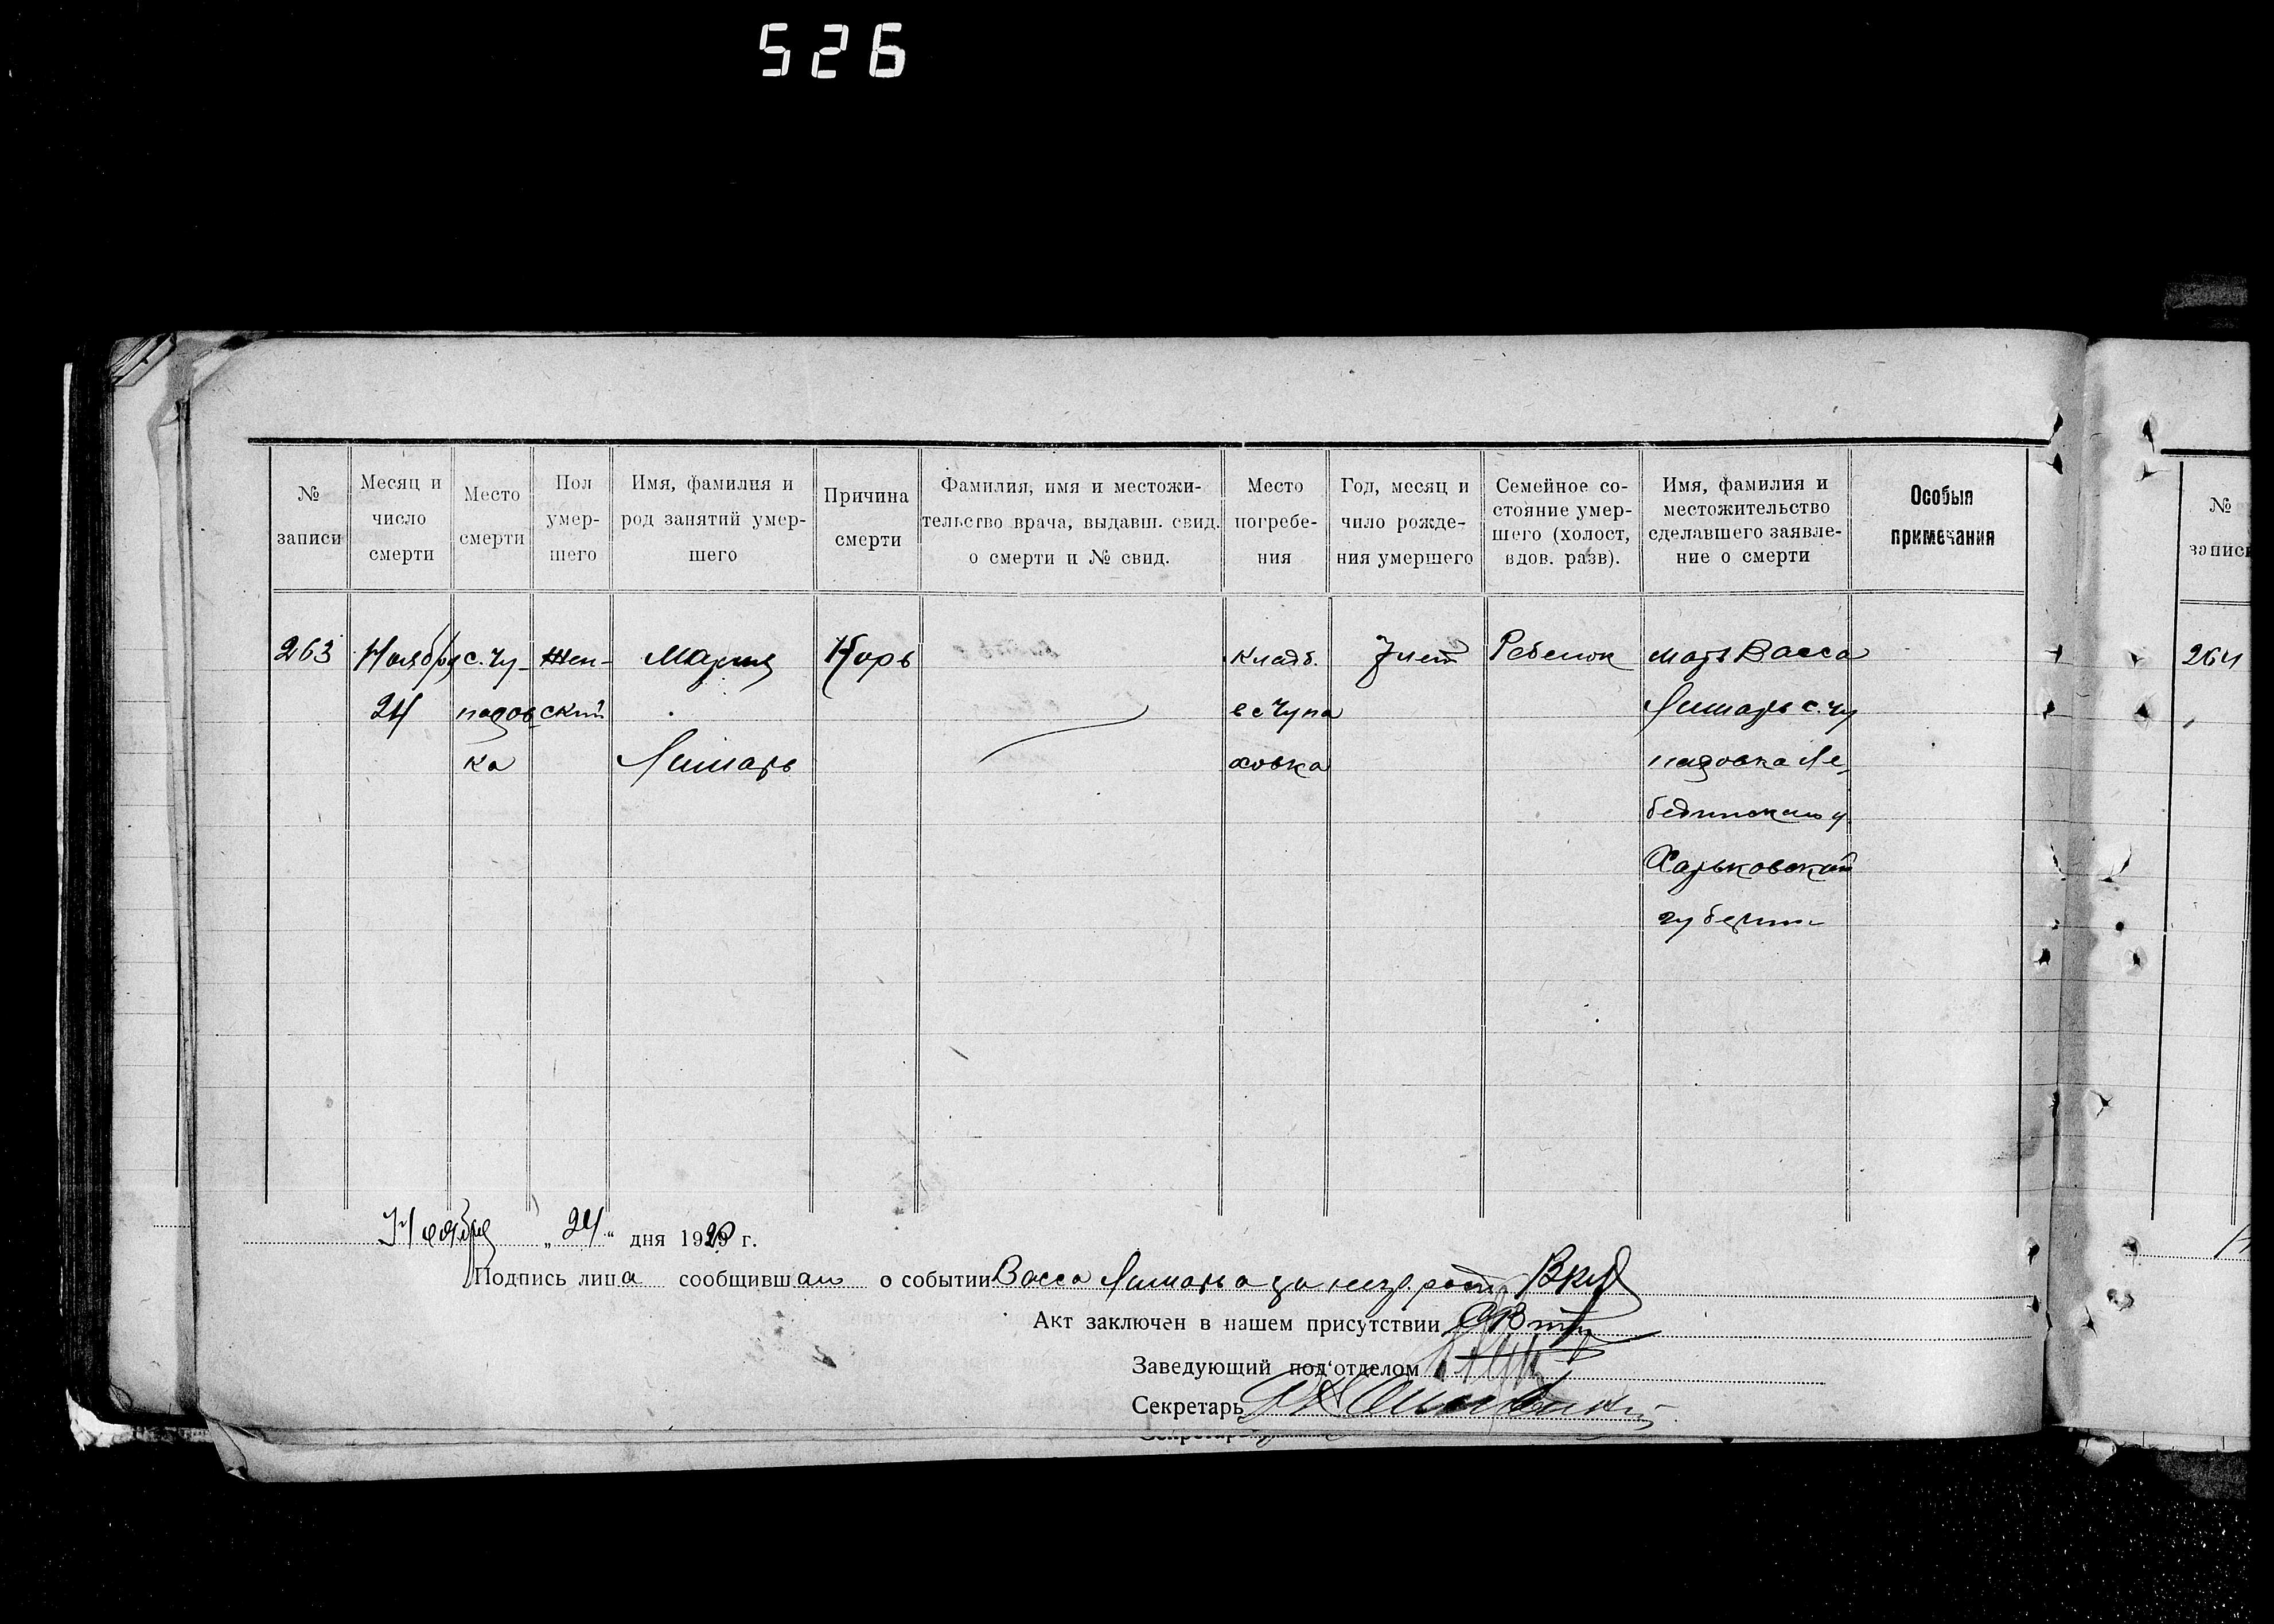 526
№ записи
Месяц и число смерти
Место смерти
Пол умер- шего
Имя, фамилия и род занятий умер- шего
Причина смерти
Фамилия, имя и местожи- тельство врача, выдавш. свид. о смерти и № свид.
Место погребе- ния
Год, месяц и чило рожде- ния умершего
Семейное со- стояние умер- шего (холост, вдов. разв).
Имя, фамилия и местожительство сделавшего заявле- ние о смерти
Особыя примечания
№
записи
263
Ноября
24
с. Чу-
ка
Жен-
ский
Мария
Лишарь
Корь
кладб.
в с Чупа
ховка
7 лет
Ребенок
мать Васса
Лишарь с. Чу
Ле-
бединского у
Харьковской
губернии
264
Ноября „24“ дня 1920 г.
Подпись лица сообщивш о событии Васса
Акт заключен в нашем присутствии
Заведующий под'отделом
Секретарь